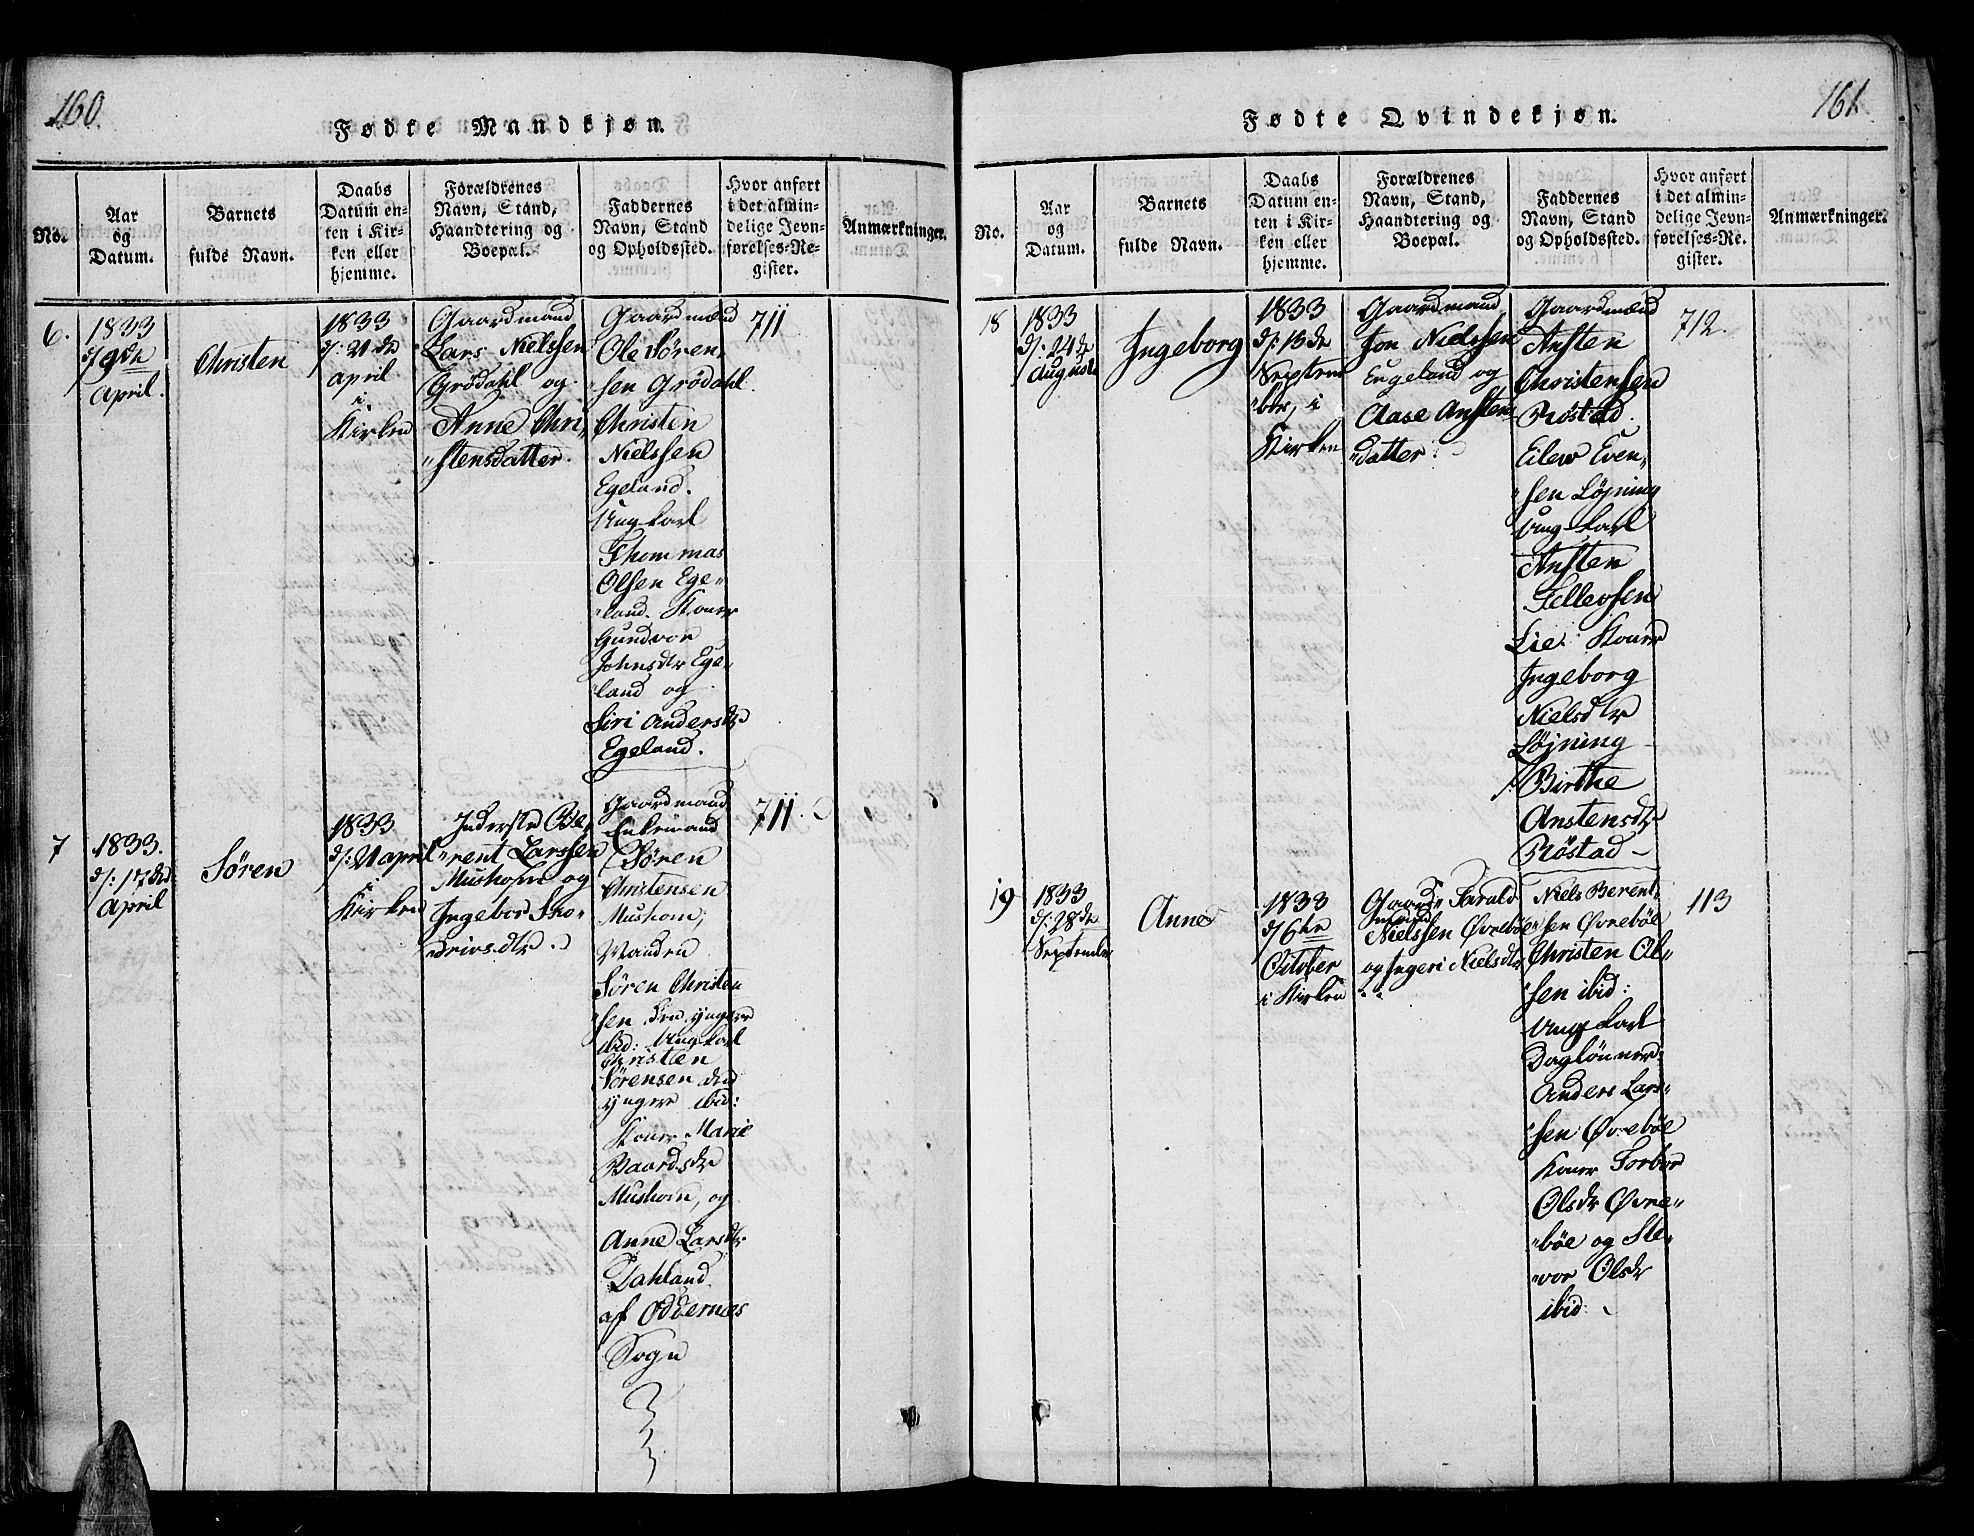 160.
Fødte Mandkjøn.
No.
Aar
og
Datum.
Barnets
fulde Navn.
Daabs
Datum en-
ten i Kir-
ken eller
hjemme.
Forældrenes
Navn, Stand,
Haandtering og
Boepæl.
Faddernes
Navn, Stand
og Opholdssted.
Hvor anført
i det almin-
delige Jevn-
førelses-Re-
gister.
Anmærkninger.
6.
1833
d/9de
April.
Christen
1833
d/: 21de
april
i
Kirken
Gaardmand
Lars Nielssen
Grödahl og
Anne Chri„
„stensdatter.
Gaardmænd
Ole Sören„
„sen Grödahl.
Christen
Nielssen
Egeland.
Ungkarl
Thommas
Olsen Ege„
„land. Koner
Gundvor
Johnsdtr Ege„
„land og
Siri Andersdtr
Egeland.
711
7
1833.
d/: 17de
April
Sören
1833
d/: 21 april
i
Kirken
Inderste Be„
„rent Larssen
Mushom og
Ingebor Tho„
Gaardmand
Enkemand
Sören
Christensen
Mushom,
Sören Christen
„sen den yngere
ibid: Ungkarl
Christen
Sörensen den
yngere ibid:
Koner Marie
Baardsdtr
Mushom, og
Anne Larsdtr
Dahland
af Oddernæs
Sogn
711.
161
Fødte Qvindekjøn.
No.
Aar
og
Datum.
Barnets
fulde Navn.
Daabs
Datum en-
ten i Kir-
ken eller
hjemme.
Forældrenes
Navn, Stand,
Haandtering og
Boepæl.
Faddernes
Navn, Stand
og Opholdssted.
Hvor anført
i det almin-
delige Jevn-
førelses-Re-
gister.
Anmærkninger.
18
1833
d/: 24de
August
Ingeborg
1833
d/: 15de
Septem
„ber, i
Kirken
Gaardmand
Jon Nielssen
Engeland og
Aase Ansten
„datter.
Gaardmænd
Ansten
Christensen
Röstad.
Eilev Even„
„sen Löjning
Ungkarl
Ansten
Tellevsen
Lie. Koner
Ingeborg
Nielsdtr
Löjning
Birthe
Anstensdtr
Röstad
712.
19
1833
d/: 28de
September
Anne
1833
d/6te
October
i Kirken
Gaard„ Tarald
mand
Nielssen Øvreböe
og Ingeri Nielsdtr
Niels Berent„
„sen Øvreböe
Christen Ol„
„sen ibid:
Ungkarl
Daglönner
Anders Lars„
„sen Øvreböe
Koner Torbor
Olsdr Øvre„
„böe og Ste„
„vor Olsdr
ibid:
113